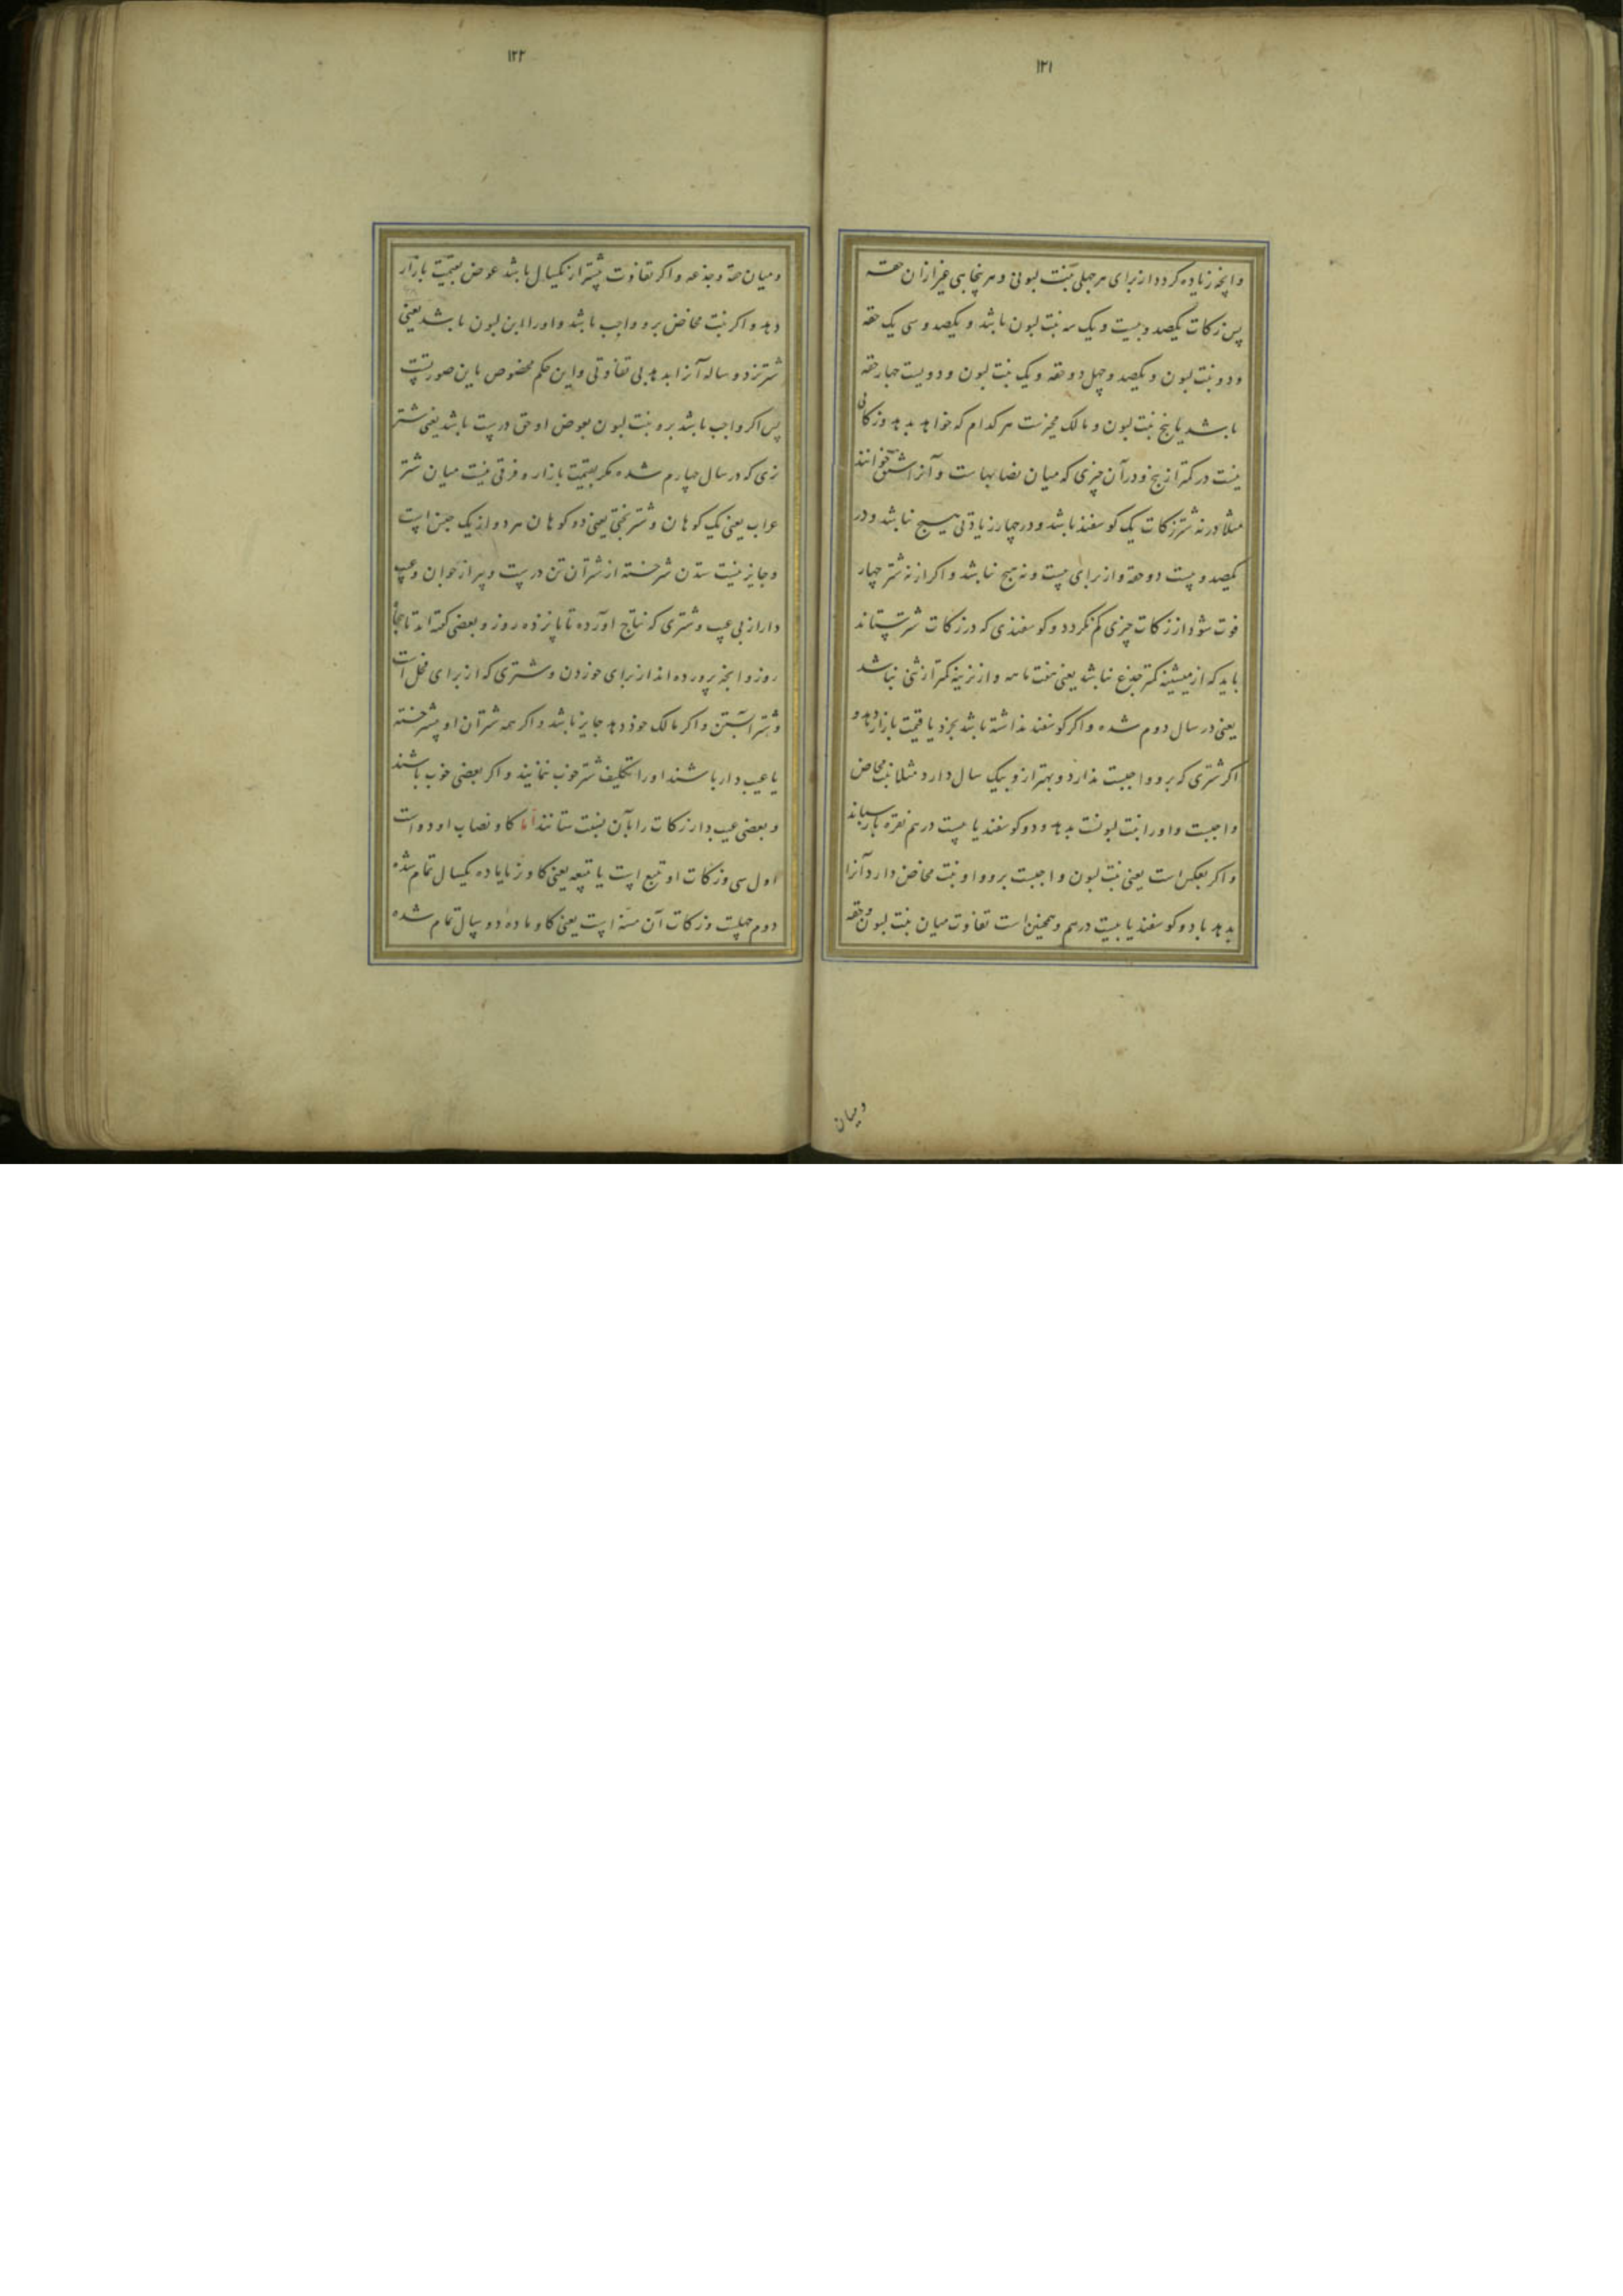 ۱۲۱
وانچه زیاده کردد از برای هر چهلی بنت لبونی و هر پنجاهی غیر ازان حقه
پس زکات یکصد و بیست و یک سه بنت لبون باشد و یکصد و سی یک حقه
و دو بنت لبون و یکصد و چهل دو حقه و یک بنت لبون و دویست چهار حقه
باشد یا پنج بنت لبون و مالک مخیرست هر کدام که خواهد بدهد و زکاتی
نیست در کمتر از پنج و در آن چیزی که میان نصابهاست و آنرا شنق خوانند
مثلا در نه شتر زکات یک کوسفند باشد و در چهار زیادتی هیچ نباشد و در
یکصد و بیست دو حقه و از برای بیست و نه هیچ نباشد و اکر از نه شتر چهار
فوت شود از زکات چیزی کم نکردد و کوسفندی که در زکات شتر ستاند
باید که از میشینه کمتر جذع نباشد یعنی هفت ماهه و از بزینه کمتر از ثنی نباشد
یعنی در سال دوم شده و اکر کوسفند نداشته باشد بخرد یا قیمت بازار بدهد و
اکر شتری که برو واجبست ندارد و بهتر ازو بیک سال دارد مثلا بنت مخاض
واجبست و او را بنت لبونست بدهد و دو کوسفند یا بیست درهم نقره بازستاند
و اکر بعکس است یعنی بنت لبون واجبست برو و او بنت مخاض دارد آنرا
بدهد با دو کوسفند یا بیست درهم و همچنین است تفاوت میان بنت لبون و حقه
ومیان
۱۲۲
و میان حقه و جذعه و اکر تفاوت بیشتر از یکسال باشد عوض بقیمت بازار
دهد و اکر بنت مخاض برو واجب باشد و او را ابن لبون باشد یعنی
شتر نر دو ساله آنرا بدهد بی تفاوتی و این حکم مخصوص باین صورتست
پس اکر واجب باشد برو بنت لبون بعوض او حق درست باشد یعنی شتر
نری که در سال چهارم شده مکر بقیمت بازار و فرقی نیست میان شتر
عراب یعنی یک کوهان و شتر بختی یعنی دو کوهان هر دو از یک جنس است
و جایز نیست ستدن شتر خسته از شتران تن درست و پیر از جوان و عیب
دار از بی عیب و شتری که نتاج آورده تا پانزده روز و بعضی کفته اند تا پنجاه
روز و انچه پرورده اند از برای خوردن و شتری که از برای فحل است
و شتر آبستن و اکر مالک خود دهد جایز باشد و اکر همه شتران او خسته
یا عیب دار باشند او را تکلیف شتر خوب ننمایند و اکر بعضی خوب باشند
و بعضی عیب دار زکات را بآن نسبت ستانند اما کاو نصاب او دو است
اول سی و زکات او تبیع است یا تبیعه یعنی کاو نر یا ماده یکسال تمام شده
دوم چهلست و زکات آن مسنه است یعنی کاو ماده دو سال تمام شده